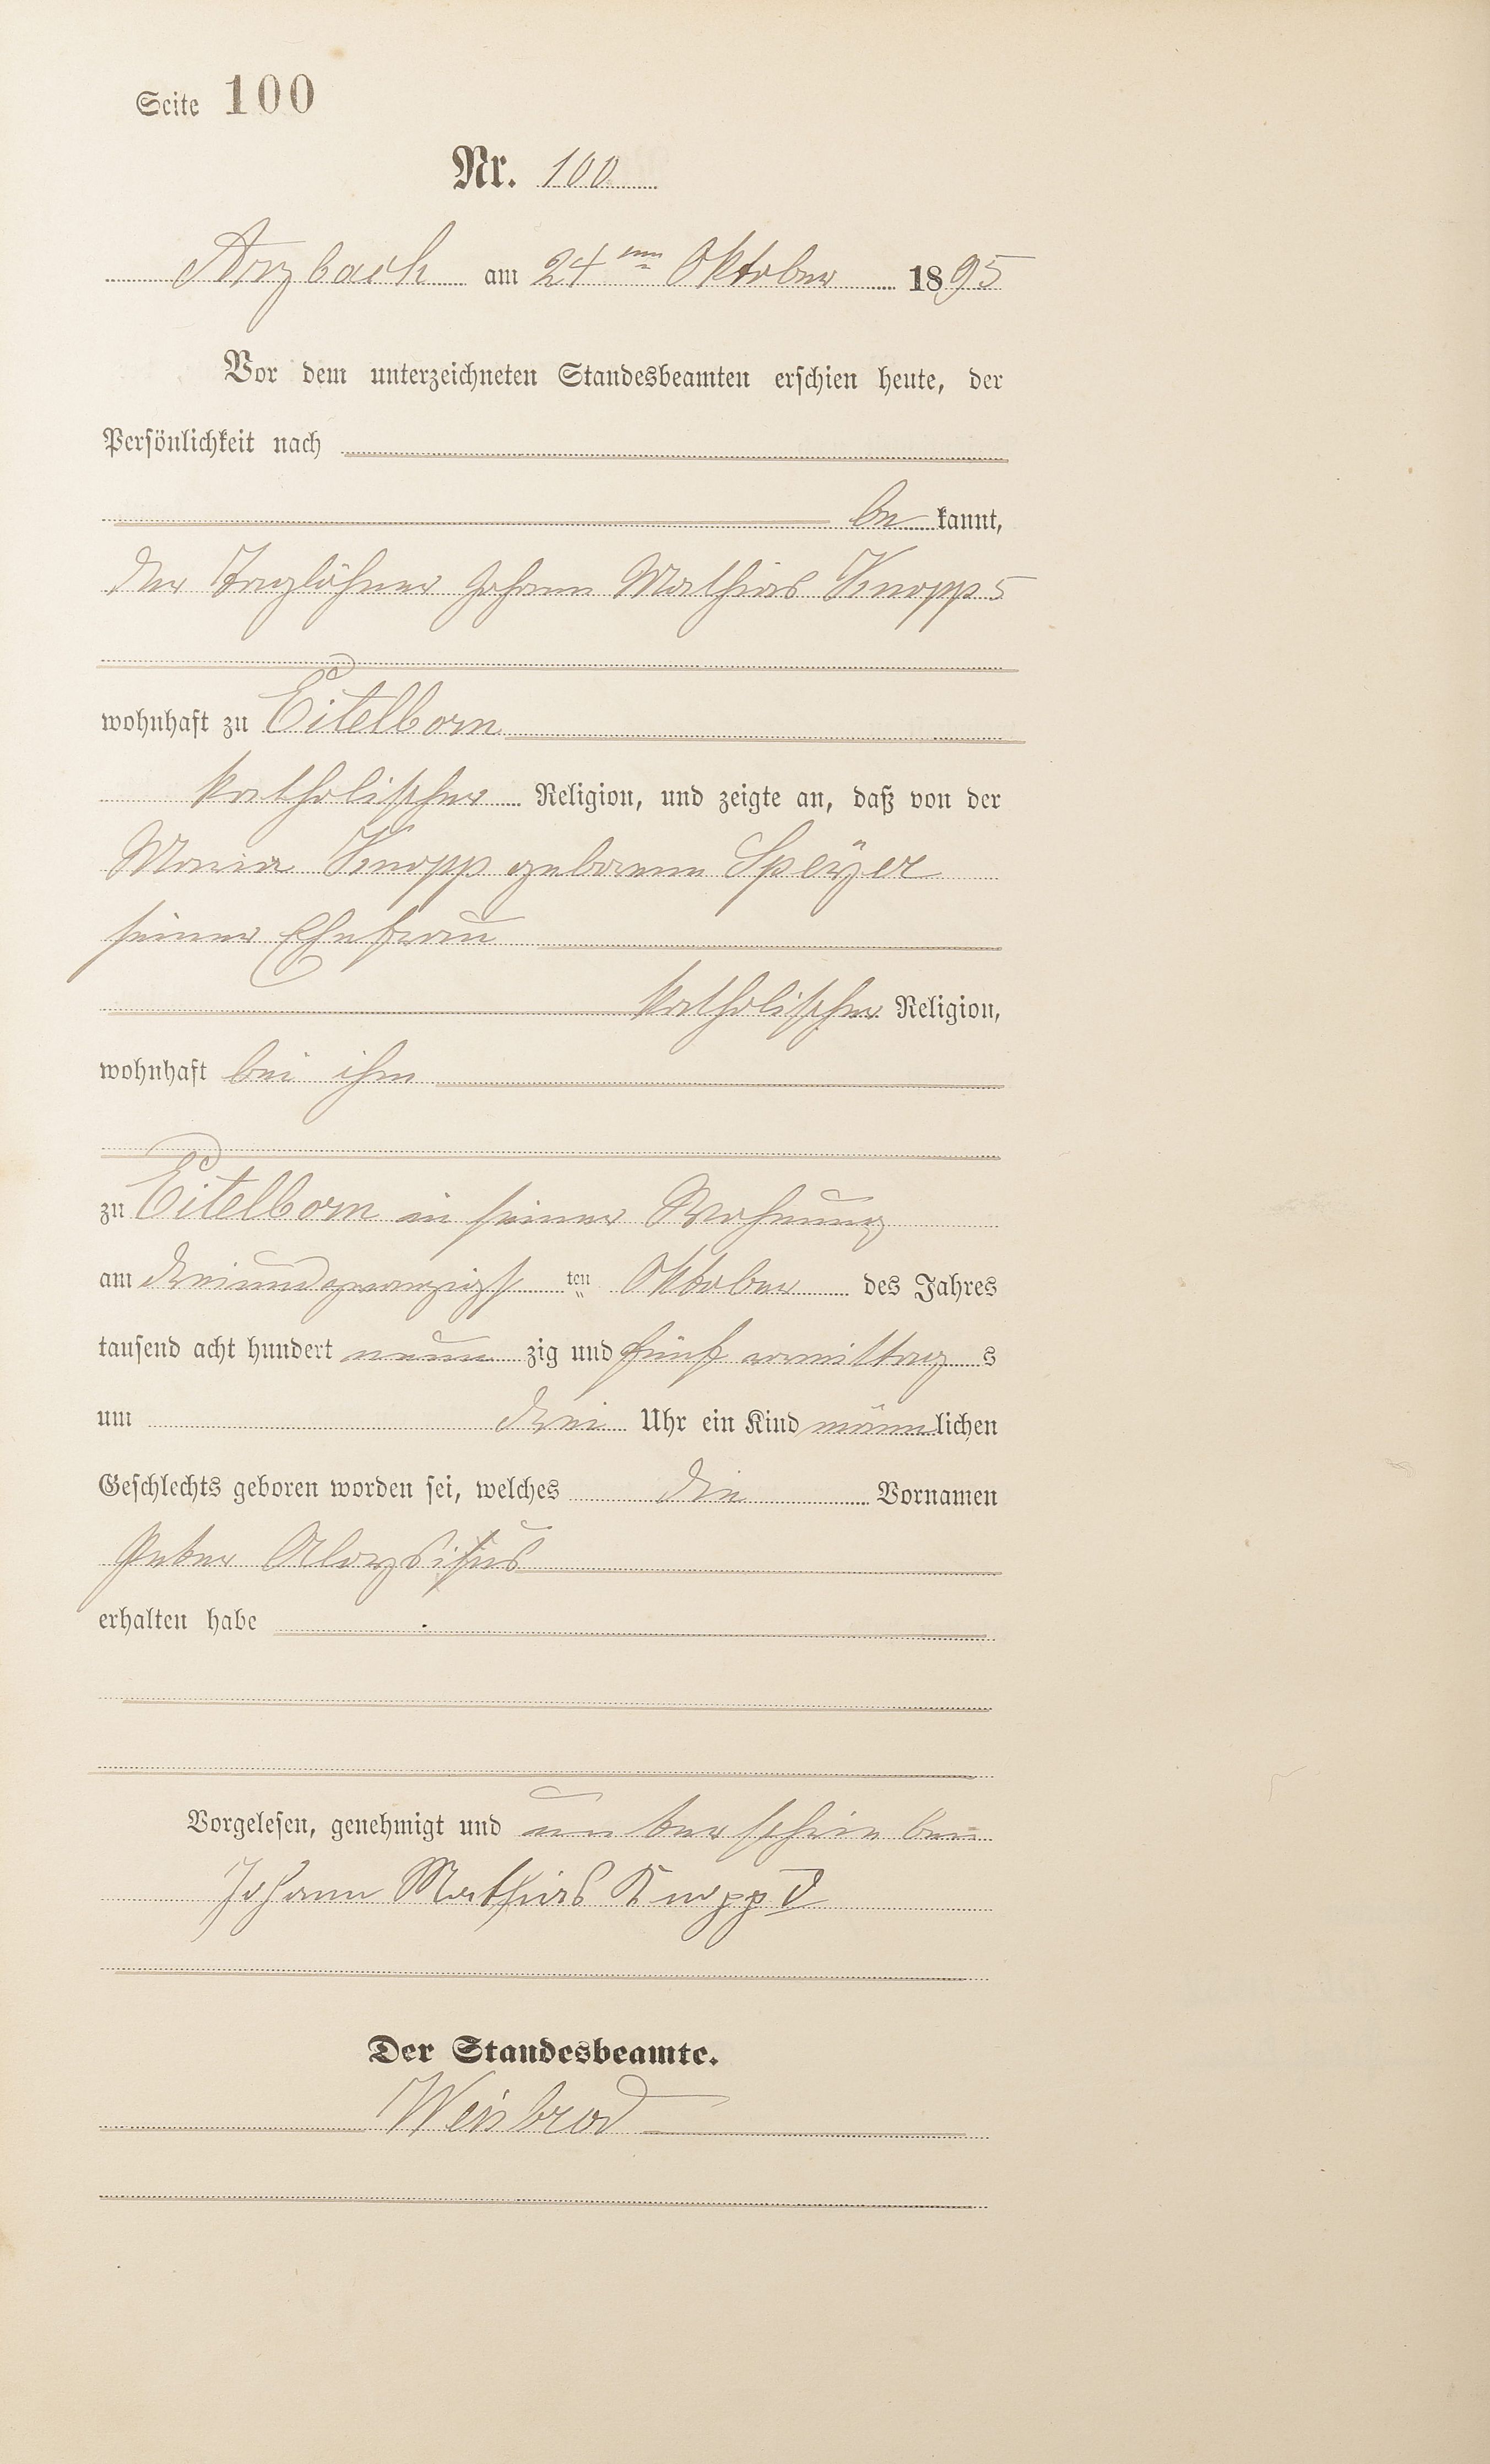 Seite 100
Nr. 100
Arzbach am 24ten Oktober 1895
Vor dem unterzeichneten Standesbeamten erschien heute, der
Persönlichkeit nach
be kannt,
der Taglöhner Johann Mathias Knopp 5
wohnhaft zu Eitelborn
katholischer Religion, und zeigte an, daß von der
Maria Knopp geborene Speÿer
seiner Ehefrau
katholischer Religion,
wohnhaft bei ihm
zu Eitelborn in seiner Wohnung
am dreiundzwanzigst ten Oktober des Jahres
tausend acht hundert neun zig und fünf vormittag s
um drei Uhr ein Kind männlichen
Geschlechts geboren worden sei, welches die Vornamen
Peter
erhalten habe
Vorgelesen, genehmigt und unterschrieben
Johann Mathias Knopp V
Der Standesbeamte.
Weisbrod